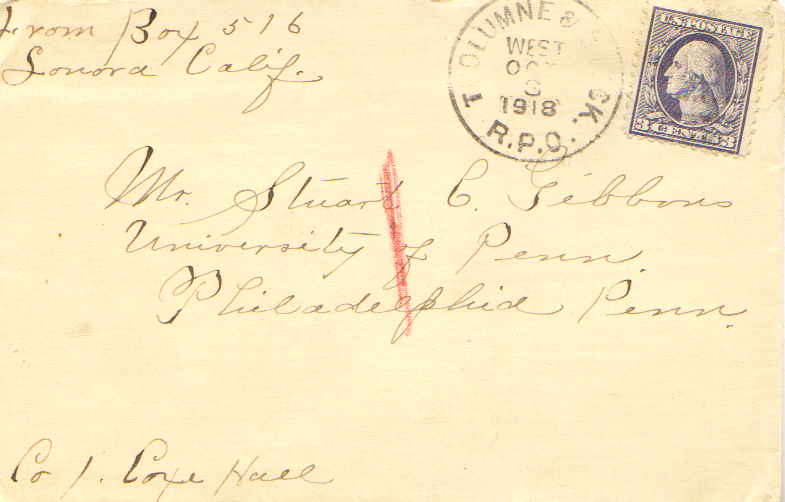 From Box 516
Sonora Calif.
TUOLUMNE & CK.
WEST
OCT
3
1918
R.P.O.
U.S. POSTAGE
3 CENTS 3
Mr. Stuart C. Gibbons
University of Penn
Philadelphia Penn.
Co 1. Coxe Hall